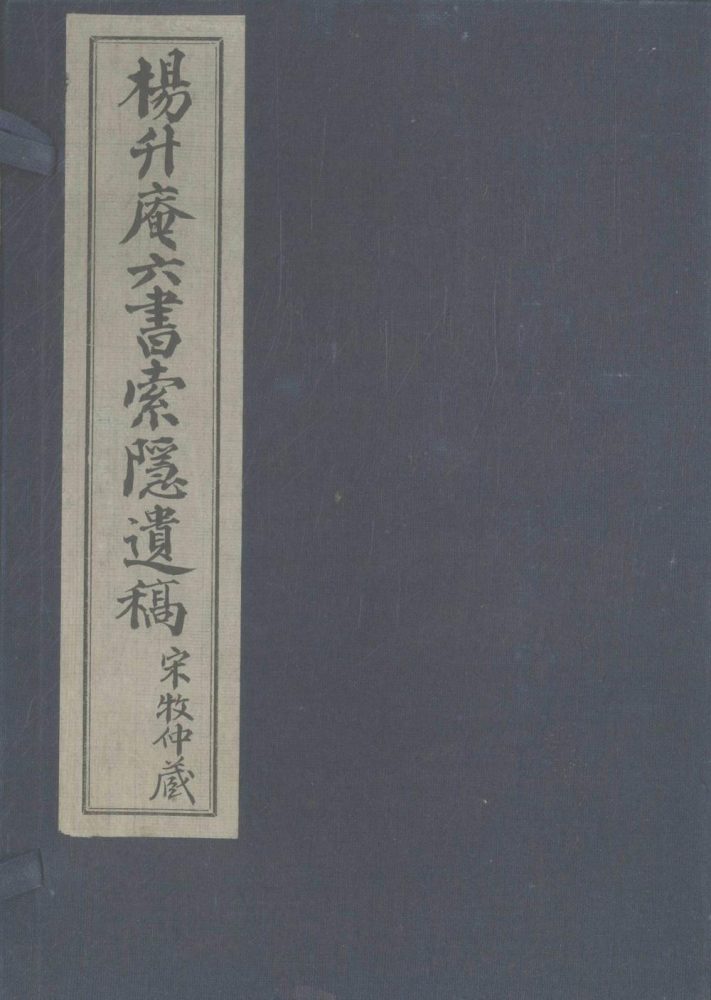 楊升庵六書索隱遺稿
宋牧仲藏